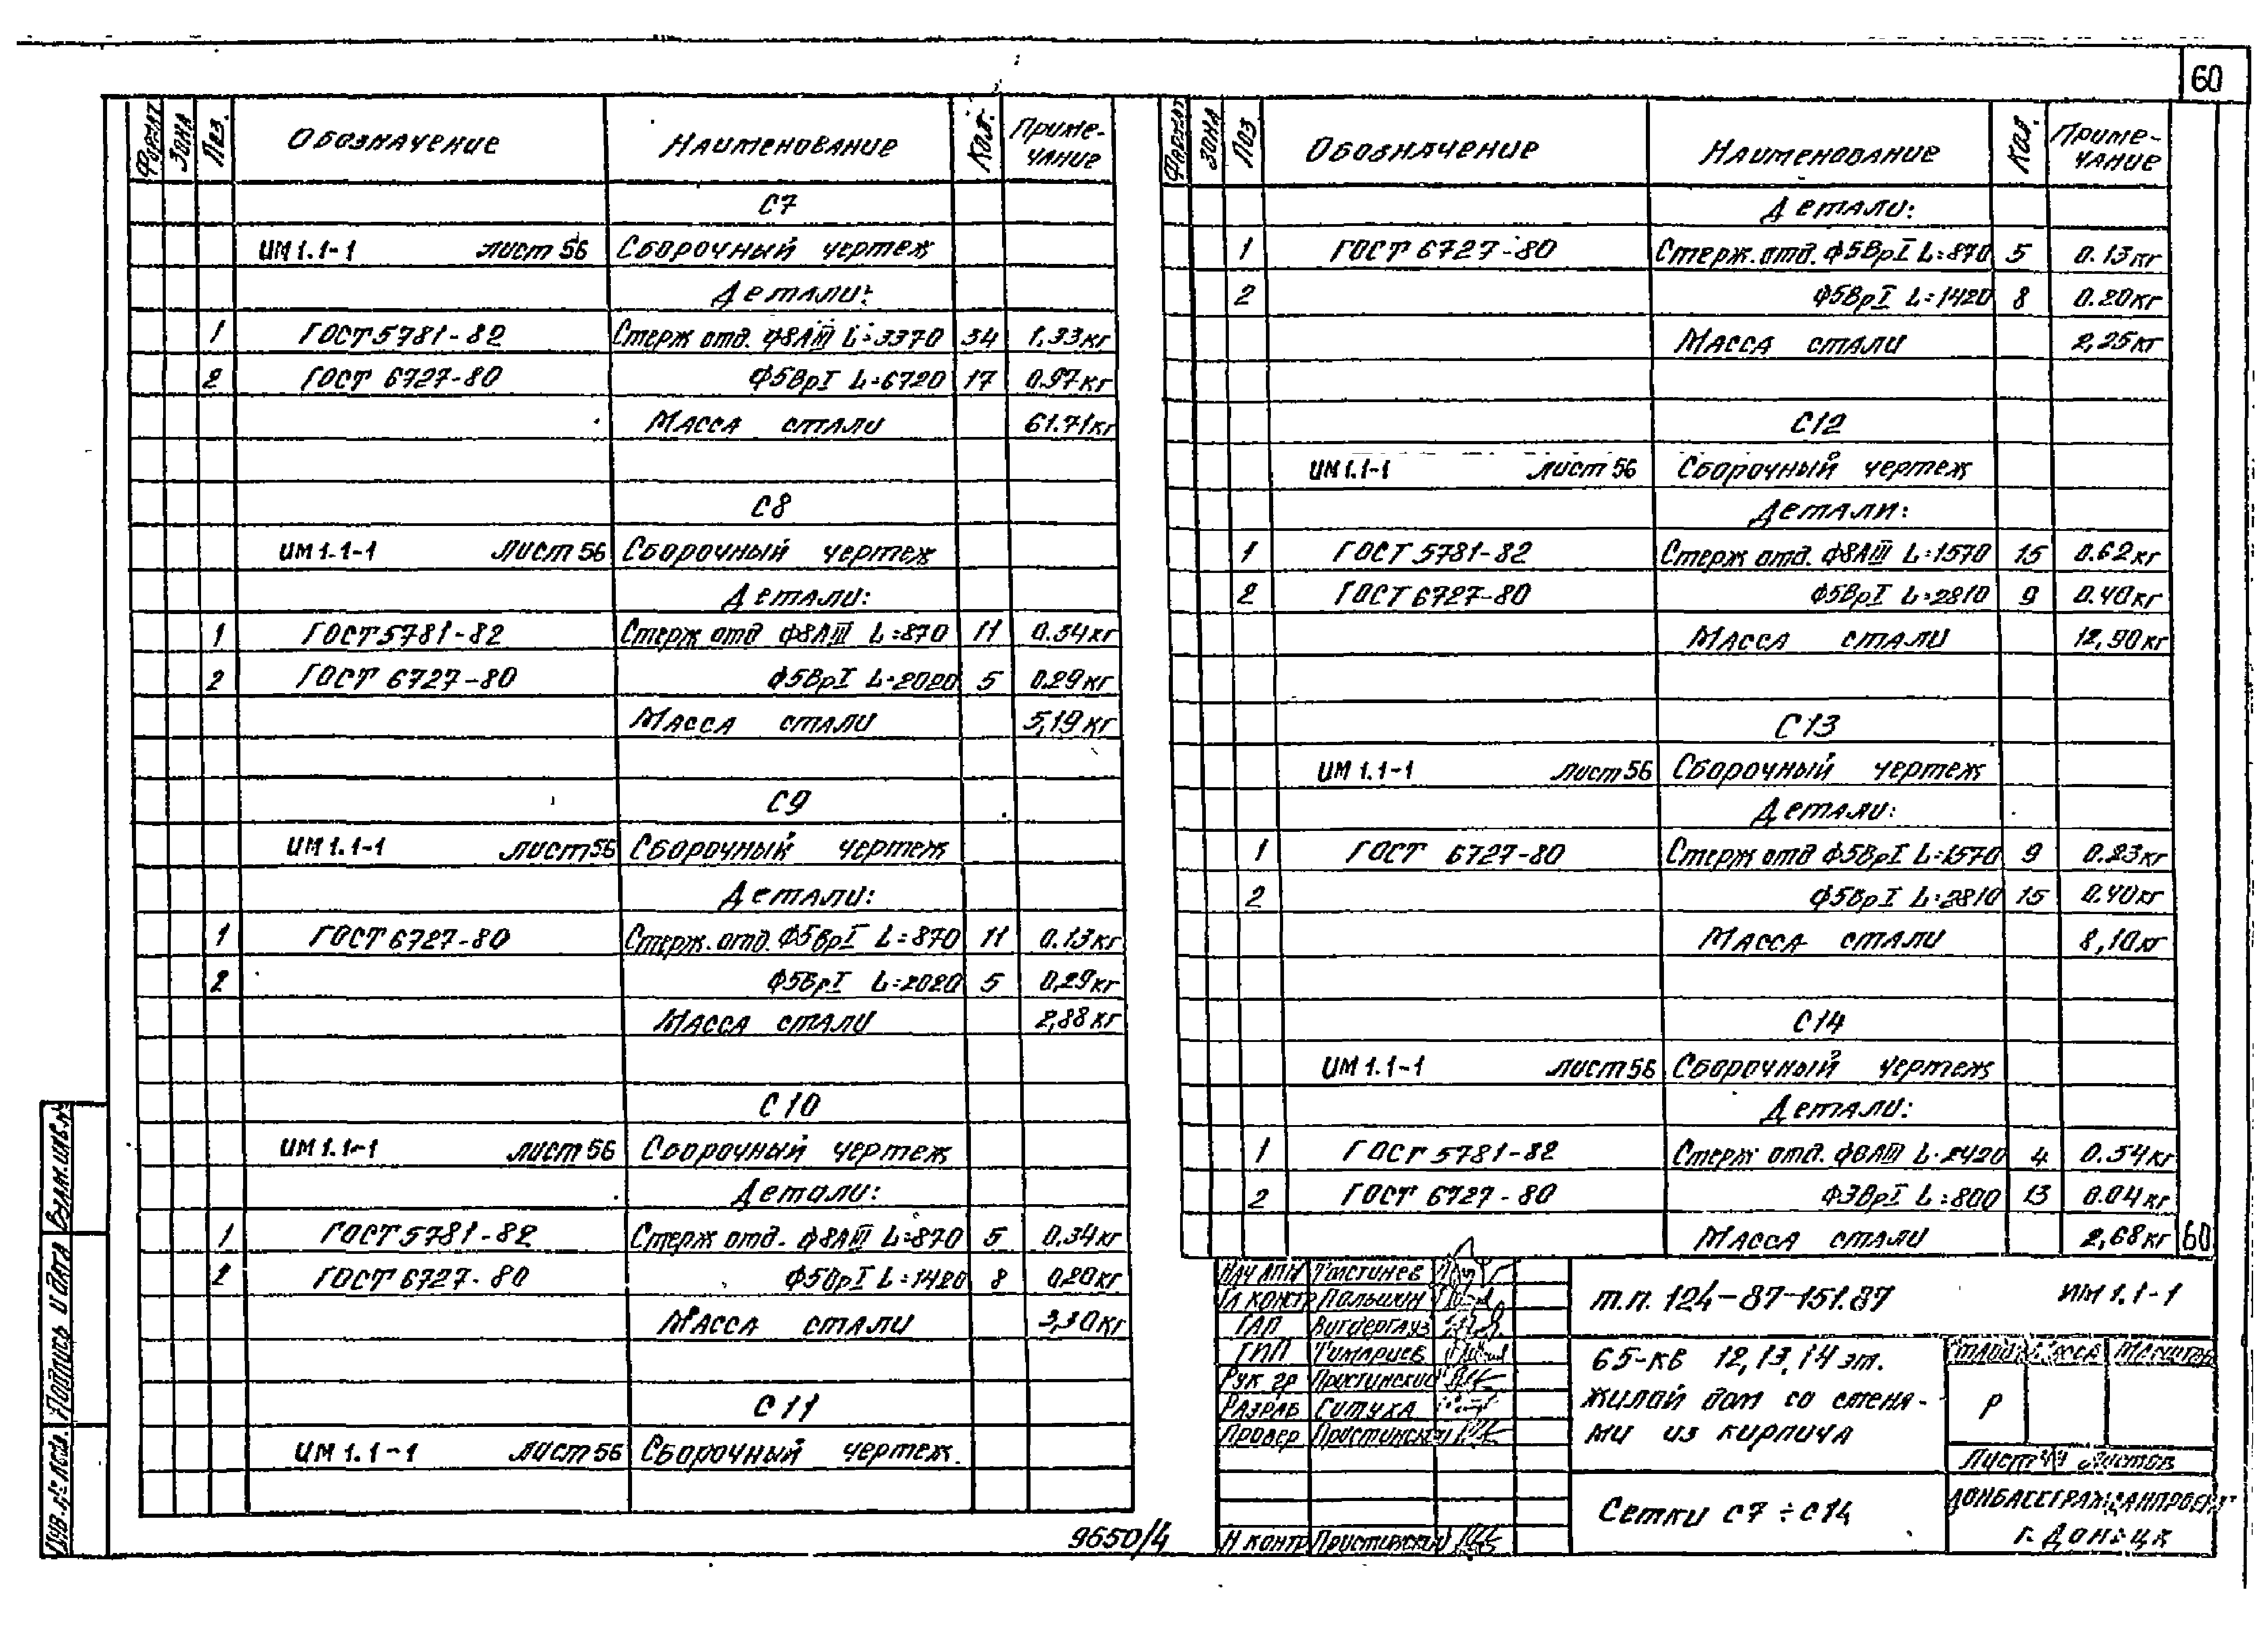 60
Формат Зона Поз. Обозначение Наименование Кол. Приме-чание
С7
ИМ 1.1-1 лист 56 Сборочный чертеж
Детали:
1 ГОСТ 5781-82 Стерж отд. Ф8АIII L=3370 34 1,33кг
2 ГОСТ 6727-80 Ф5ВрI L=6720 17 0.97кг
Масса стали 61.71кг
С8
ИМ 1.1-1 лист 56 Сборочный чертеж
Детали:
1 ГОСТ 5781-82 Стерж отд Ф8АIII L=870 11 0.34кг
2 ГОСТ 6727-80 Ф5ВрI L=2020 5 0.29кг
Масса стали 5,19кг
С9
ИМ 1.1-1 лист 56 Сборочный чертеж
Детали:
1 ГОСТ 6727-80 Стерж.отд. Ф5ВрI L=870 11 0.13кг
2 Ф5ВрI L=2020 5 0,29кг
Масса стали 2,88кг
С10
ИМ 1.1-1 лист 56 Сборочный чертеж
Детали:
1 ГОСТ 5781-82 Стерж отд. Ф8АIII L=870 5 0.34кг
2 ГОСТ 6727-80 Ф5ВрI L=1420 8 0.20кг
Масса стали 3,30кг
С11
ИМ 1.1-1 лист 56 Сборочный чертеж.
Формат Зона Поз Обозначение Наименование Кол. Приме-чание
Детали:
1 ГОСТ 6727-80 Стерж.отд. Ф5ВрI L=870 5 0.13кг
2 Ф5ВрI L=1420 8 0.20кг
Масса стали 2,25кг
С12
ИМ 1.1-1 лист 56 Сборочный чертеж
Детали:
1 ГОСТ 5781-82 Стерж отд. Ф8АIII L=1570 15 0.62кг
2 ГОСТ 6727-80 Ф5ВрI L=2810 9 0.40кг
Масса стали 12,90кг
С13
ИМ 1.1-1 лист 56 Сборочный чертеж
Детали:
1 ГОСТ 6727-80 Стерж отд Ф5ВрI L=1570 9 0.23кг
2 Ф5ВрI L=2810 15 0.40кг
Масса стали 8,10кг
С14
ИМ 1.1-1 лист 56 Сборочный чертеж
Детали:
1 ГОСТ 5781-82 Стерж отд. Ф8АIII L=2420 4 0.54кг
2 ГОСТ 6727-80 Ф3ВрI L=800 13 0.04кг
Масса стали 2,68кг
60
Нач АПМ Толстинев
Гл констр Польшин
ГАП Вигдергауз
ГИП Тимариев
Рук гр Простинский
Разраб Ситуха
Провер Простинский
Н контр Простинский
т.п. 124-87-151.87 ИМ 1.1-1
65-кв 12,13,14 эт.
жилой дом со стена-
ми из кирпича
Стадия Масса Масштаб
Р
Лист Листов
Сетки С7÷С14
ДОНБАССГРАЖДАНПРОЕКТ
г. Донецк
Взам.инв.№
Подпись и дата
Инв.№ подл.
9650/4